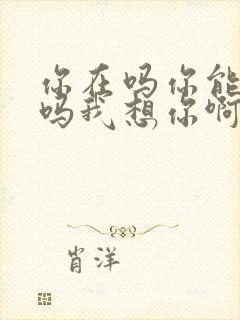 你在吗你能
吗我想你啊
肖洋